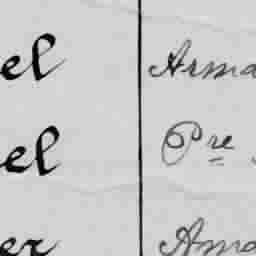 el Arma
el Pre
er Ama